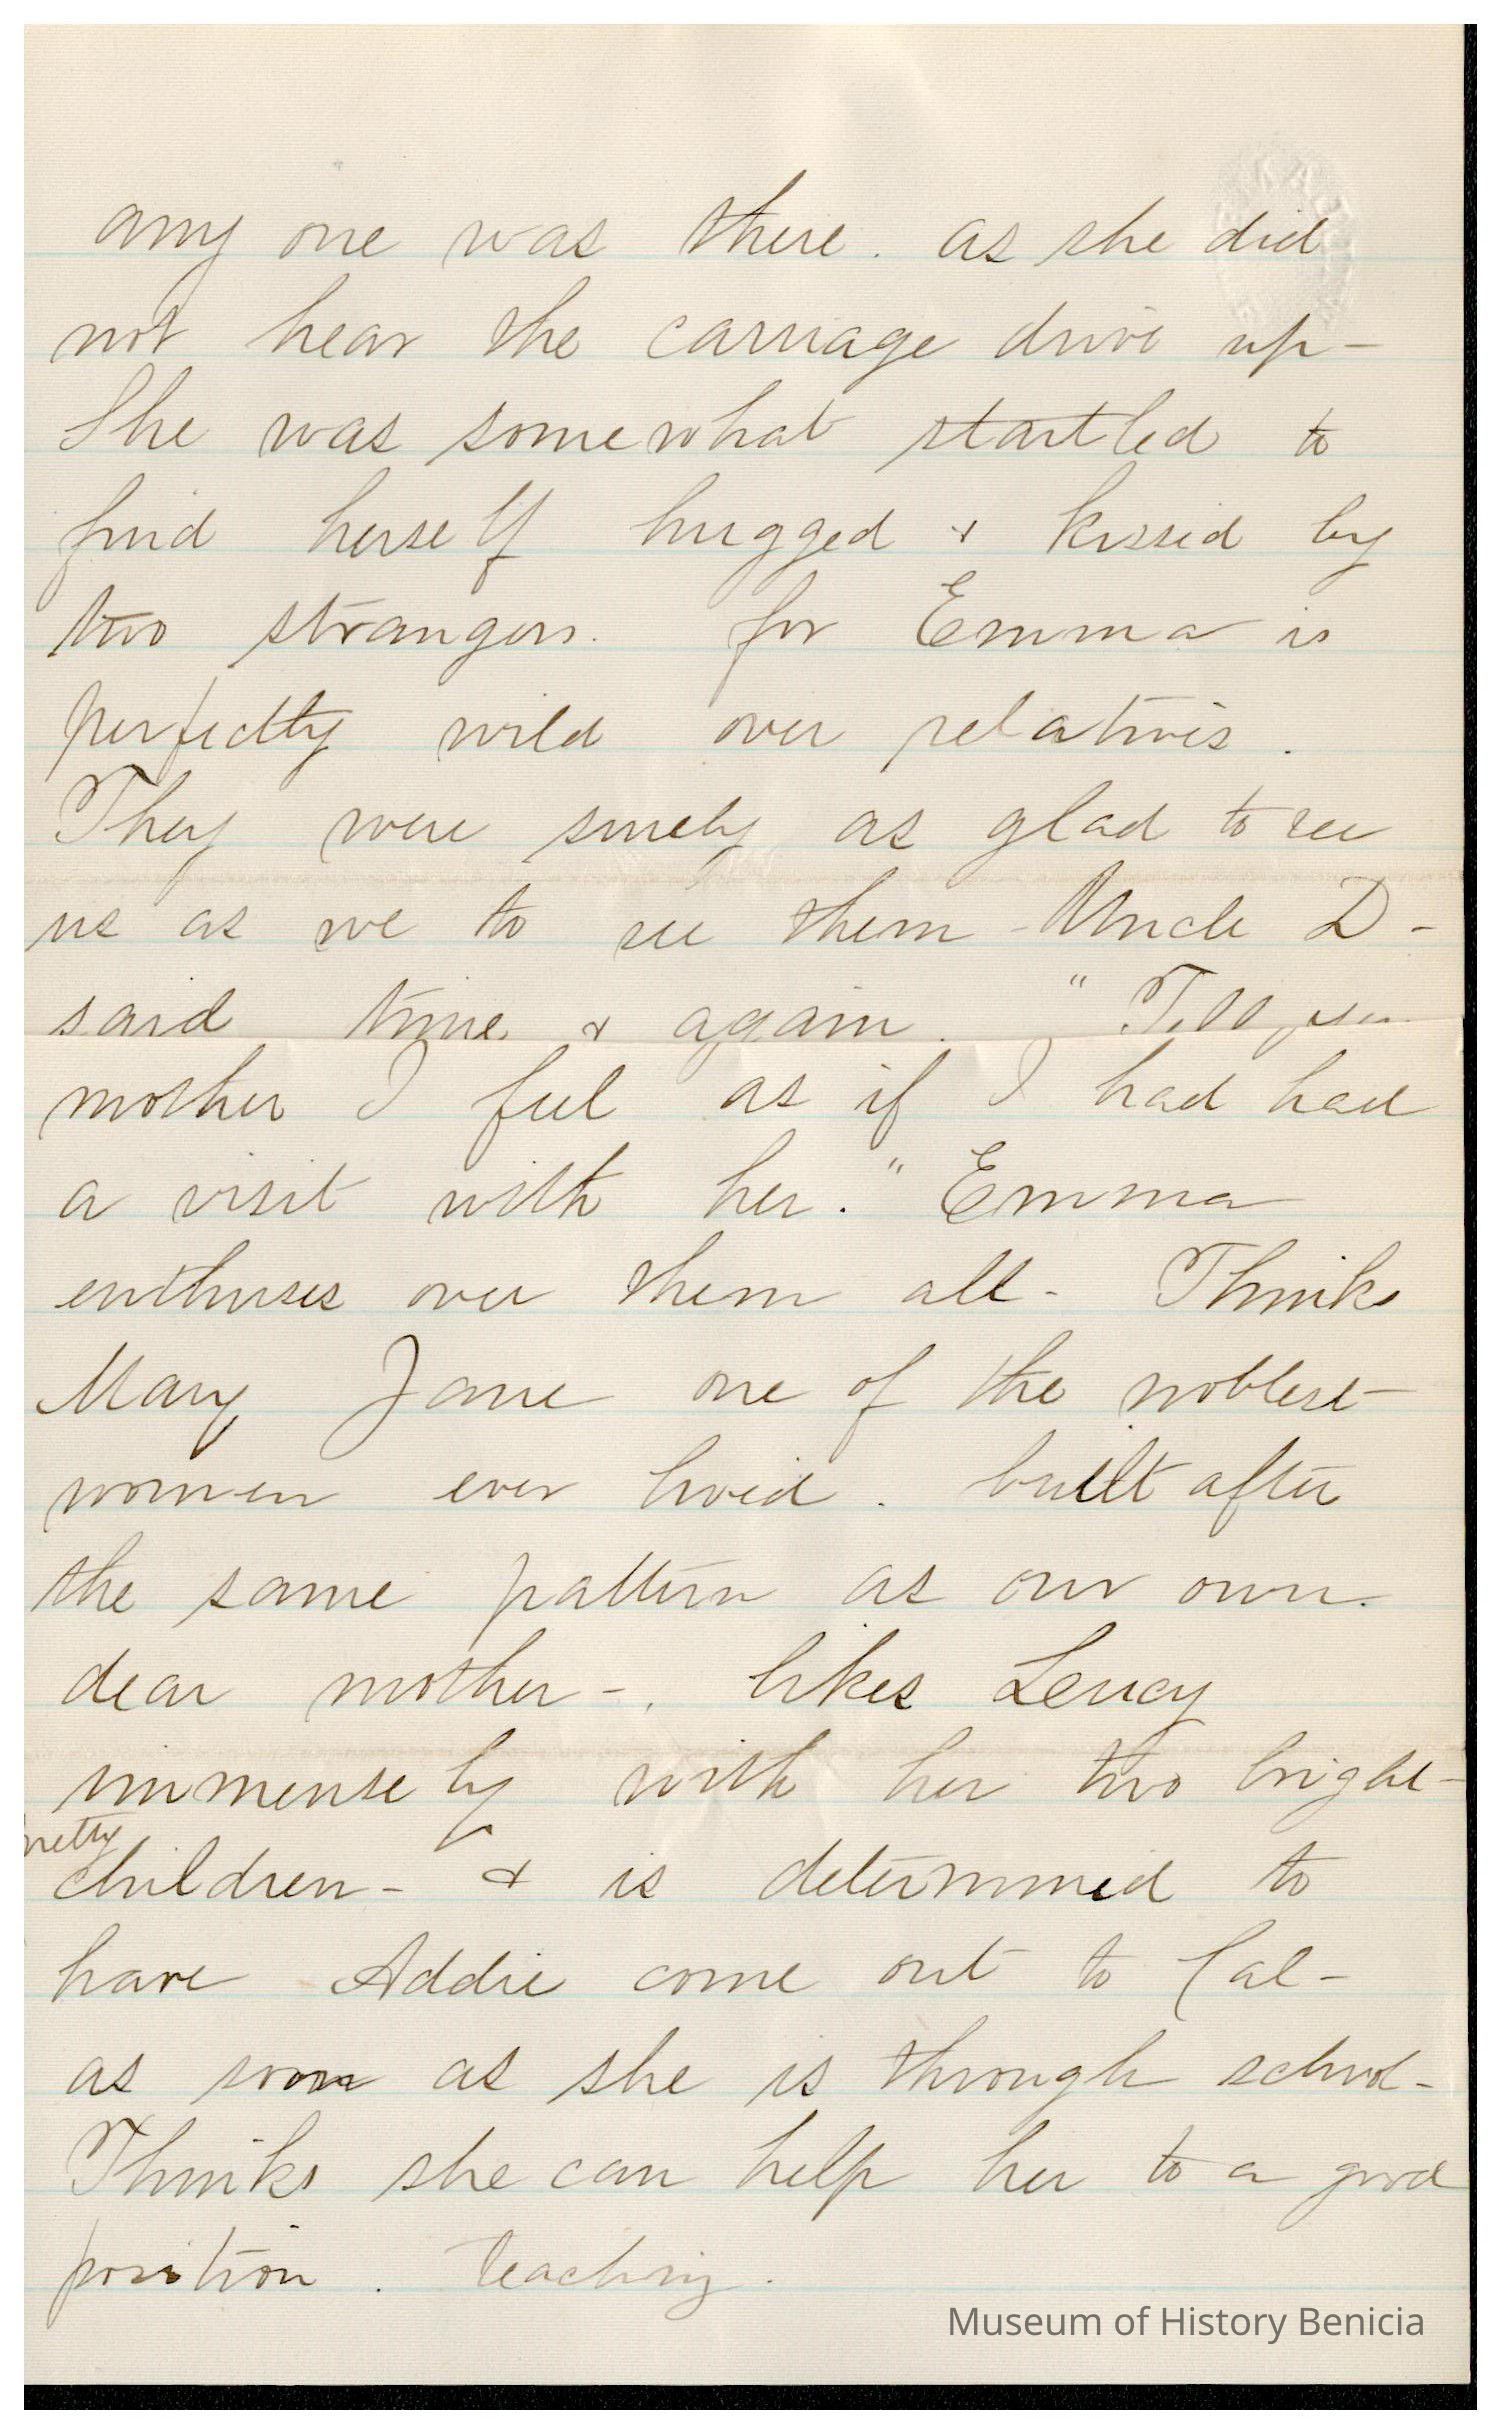 any one was there. as she did
not hear the carriage drive up-
She was somewhat startled to
find herself hugged & kissed by
two strangers. for Emma is
perfectly wild over relatives.
They were surely as glad to see
us as we to see them - Uncle D-
said time & again. "Tell your
mother I feel as if I had had
a visit with her." Emma
enthuses over them all- Thinks
Mary Jane one of the noblest
women ever lived. built after
the same pattern as our own.
dear mother-. likes Leucy
immensely with her two bright-
pretty
children- & is determined to
have Addie come out to Cal-
as soon as she is through school-
Thinks she can help her to a good
position. teaching.
Museum of History Benicia